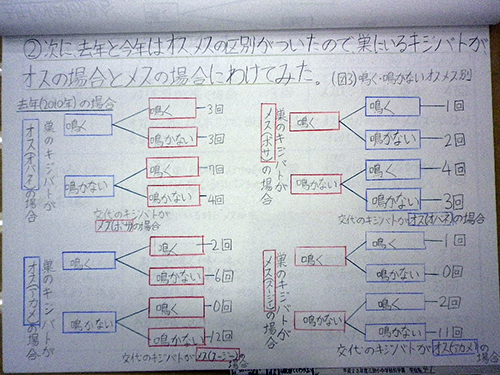 ②次に去年と今年はオスメスの区別がついたので、巣にいるキジバトが
オスの場合とメスの場合にわけてみた。(図3)鳴く・鳴かないオスメス別
去年(2010年)の場合
巣のキジバトが
オス(オバネ)の場合
鳴く
鳴く
3回
鳴かない
3回
鳴かない
鳴く
7回
鳴かない
4回
交代のキジバトが
メス(ボサ)の場合
巣のキジバトが
メス(ボサ)の場合
鳴く
鳴く
1回
鳴かない
2回
鳴かない
鳴く
4回
鳴かない
3回
交代のキジバトがオス(オバネ)の場合
巣のキジバトが
の場合
鳴く
鳴く
2回
鳴かない
6回
鳴かない
鳴く
0回
鳴かない
12回
交代のキジバトが
の場合
巣のキジバトが
の場合
鳴く
鳴く
1回
鳴かない
0回
鳴かない
鳴く
2回
鳴かない
11回
交代のキジバトが
の場合